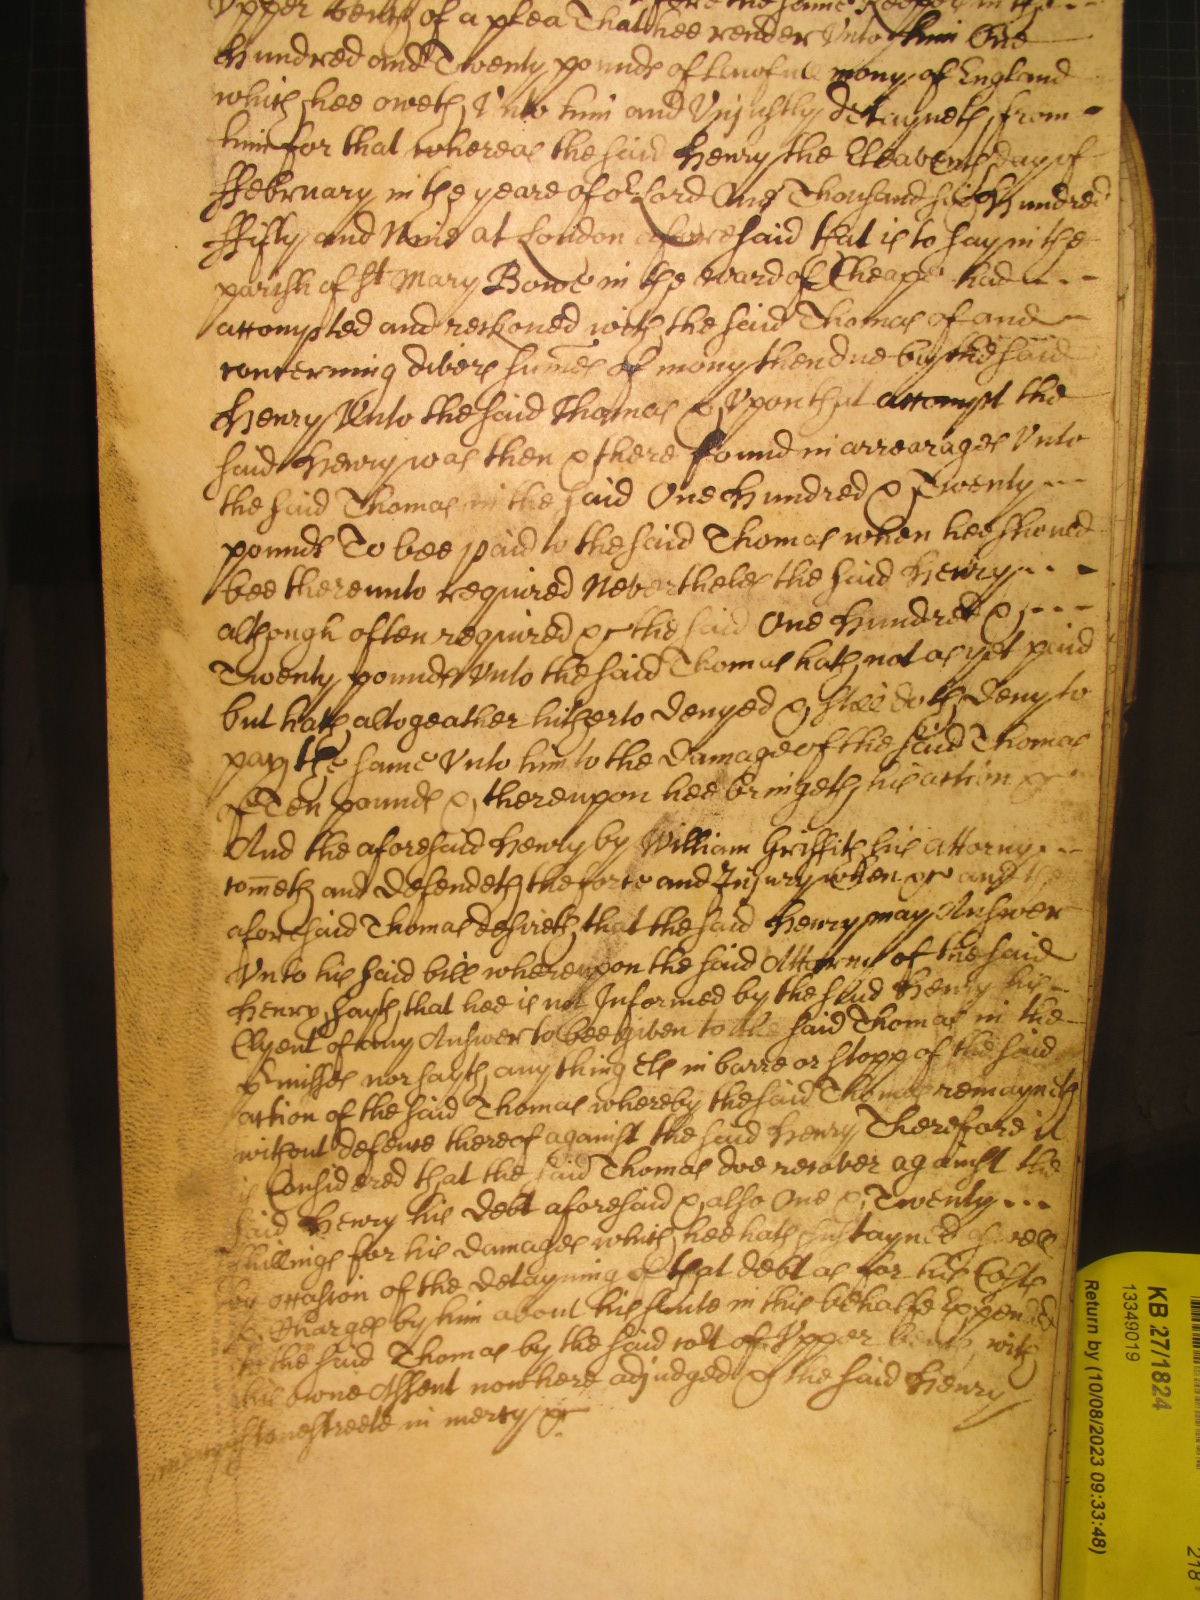 Upper bench of a plea That hee render Unto him One
Hundred and Twenty pounds of lawfull mony of England
which hee oweth Unto him and Unjustly detayneth from
him for that whereas the said Henry the Eleaventh day of
ffebruary in the yeare of or Lord One Thousand six Hundred
ffifty and Nine at London aforesaid that is to say in the
parish of St Mary Bowe in the ward of Cheape had
accompted and reckoned with the said Thomas of and
concerning divers sumes of mony then due by the said
Henry Unto the said Thomas & Upon that accompt the
said Henry was then & there found in arrearages Unto
the said Thomas in the said One Hundred & Twenty
pounds To bee paid to the said Thomas when hee should
bee thereunto required Neverthelesse the said Henry
although often required &c the said One Hundred &
Twenty pounds Unto the said Thomas hath not as yet paid
but hath altogeather hitherto denyed & still doth deny to
pay the same Unto him to the damage of the said Thomas
of Ten pounds & thereupon hee bringeth his action &c
And the aforesaid Henry by William Griffith his Attorny
cometh and defendeth the force and Injury when &c and the
aforesaid Thomas desireth that the said Henry may Answer
Unto his said bill whereupon the said Attorny of the said
Henry sayth that hee is not Informed by the said Henry his
Clyent of any Answer to bee given to the said Thomas in the
pmisses nor sayth any thing Els in barre or stopp of the said
action of the said Thomas whereby the said Thomas remayneth
without defence thereof against the said Henry Therefore it
is Considered that the said Thomas doe recover against the
said Henry his debt aforesaid & also One & Twenty
shillings for his damages which hee hath sustayned as well
by occasion of the detayning of that debt as for his Costs
& Charges by him about his suite in this behalfe Expended
to the said Thomas by the said Cort of Upper bench with
his owne Assent now here adjudged & the said Henry
Stonestreete in mercy &c
KB 27/1824
13349019
Return by (10/08/2023 09:33:48)
218